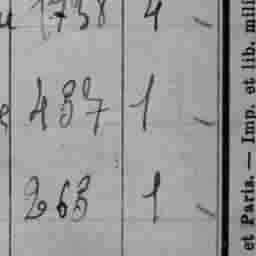 1738 4
437 1
263 1
et Paris. — Imp. et lib. mili